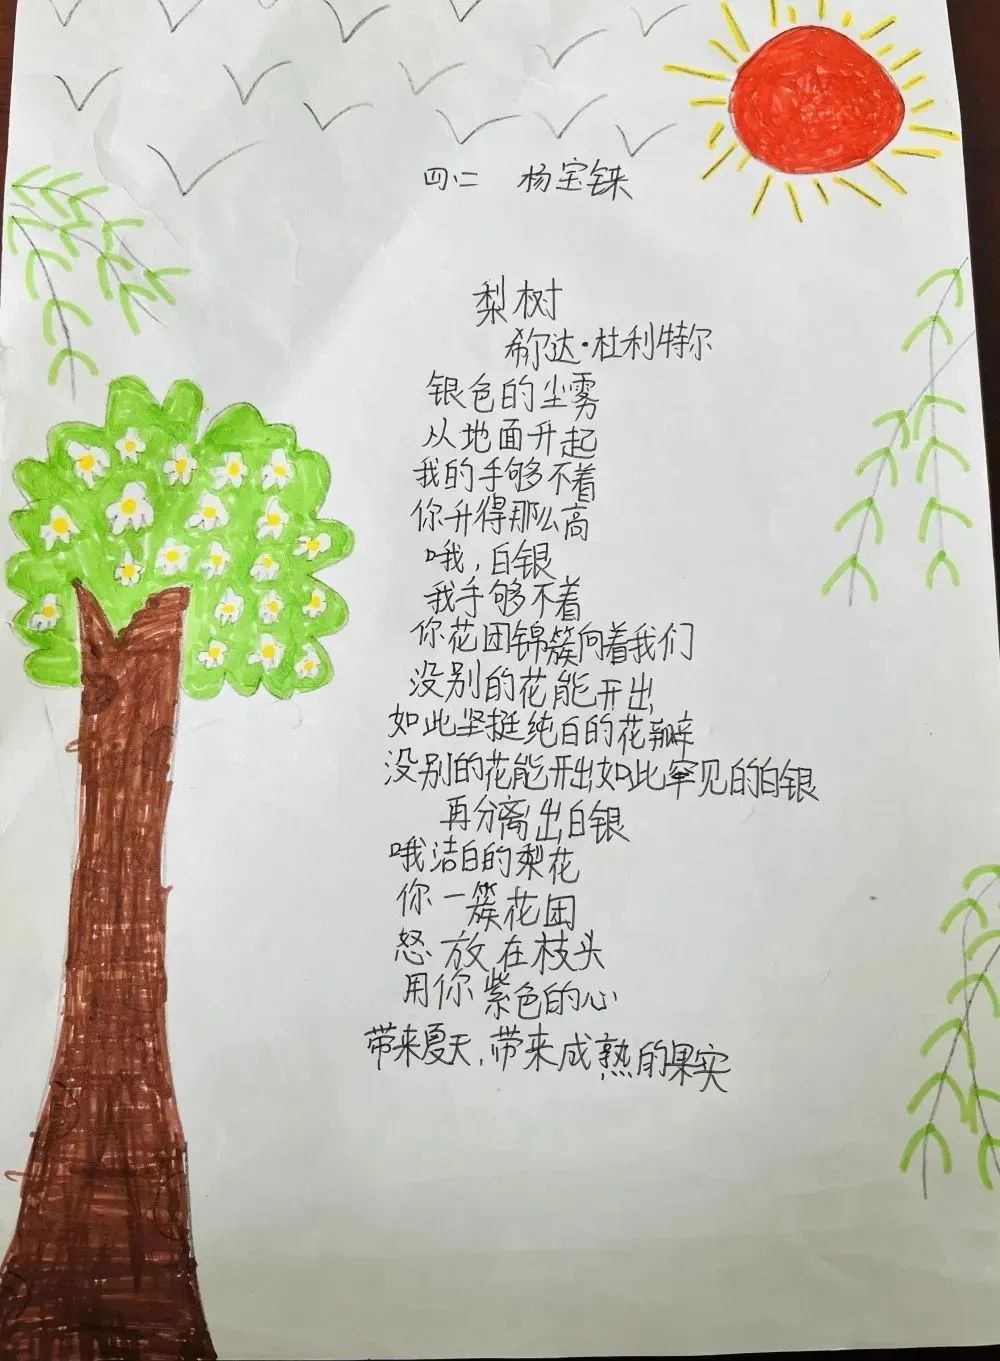 四二 杨宝铢
梨树
希尔达·杜利特尔
银色的尘雾
从地面升起
我的手够不着
你升得那么高
哦,白银
我手够不着
你花团锦簇向着我们
没别的花能开出
如此坚挺纯白的花瓣
没别的花能开出如此罕见的白银
再分离出白银
哦洁白的梨花
你一簇花团
怒放在枝头
用你紫色的心
带来夏天,带来成熟的果实